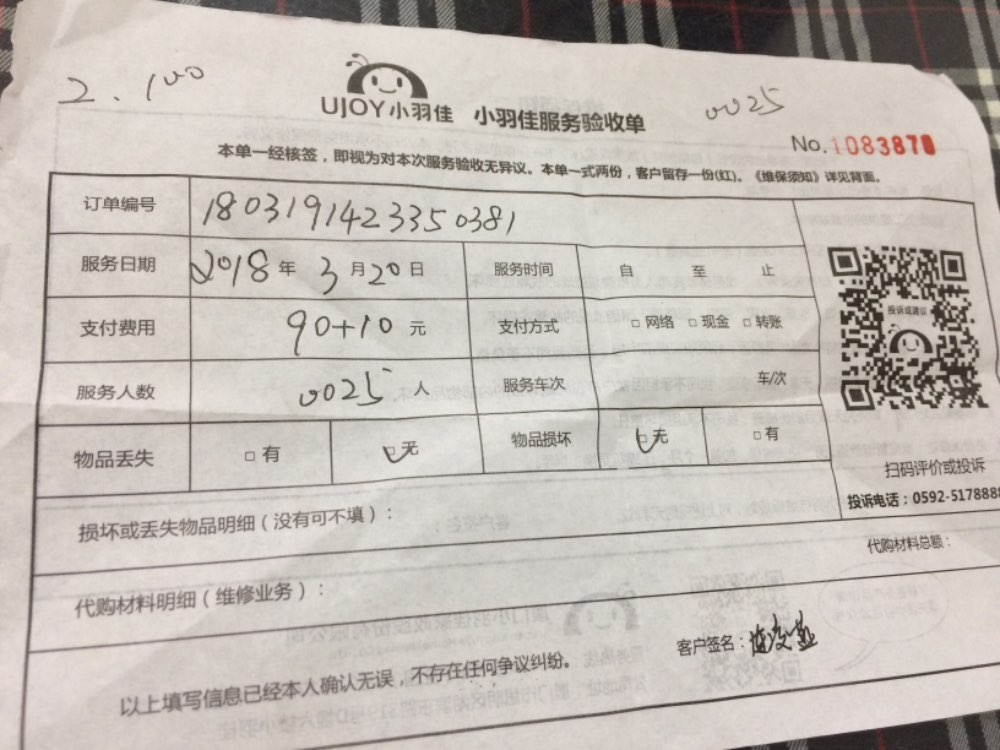 2.100
UJOY小羽佳 小羽佳服务验收单
0025
No.1083878
本单一经核签，即视为对本次服务验收无异议。本单一式两份，客户留存一份(红)。《维保须知》详见背面。
订单编号 1803191423350381
服务日期 2018年3月20日 服务时间 自 至 止
支付费用 90+10元 支付方式 □网络 □现金 □转账
服务人数 0025人 服务车次 车/次
物品丢失 □有 □无 物品损坏 □无 □有
投诉或建议
扫码评价或投诉
投诉电话：0592-5178888
损坏或丢失物品明细（没有可不填）：
代购材料总额：
代购材料明细（维修业务）：
客户签名：
以上填写信息已经本人确认无误，不存在任何争议纠纷。